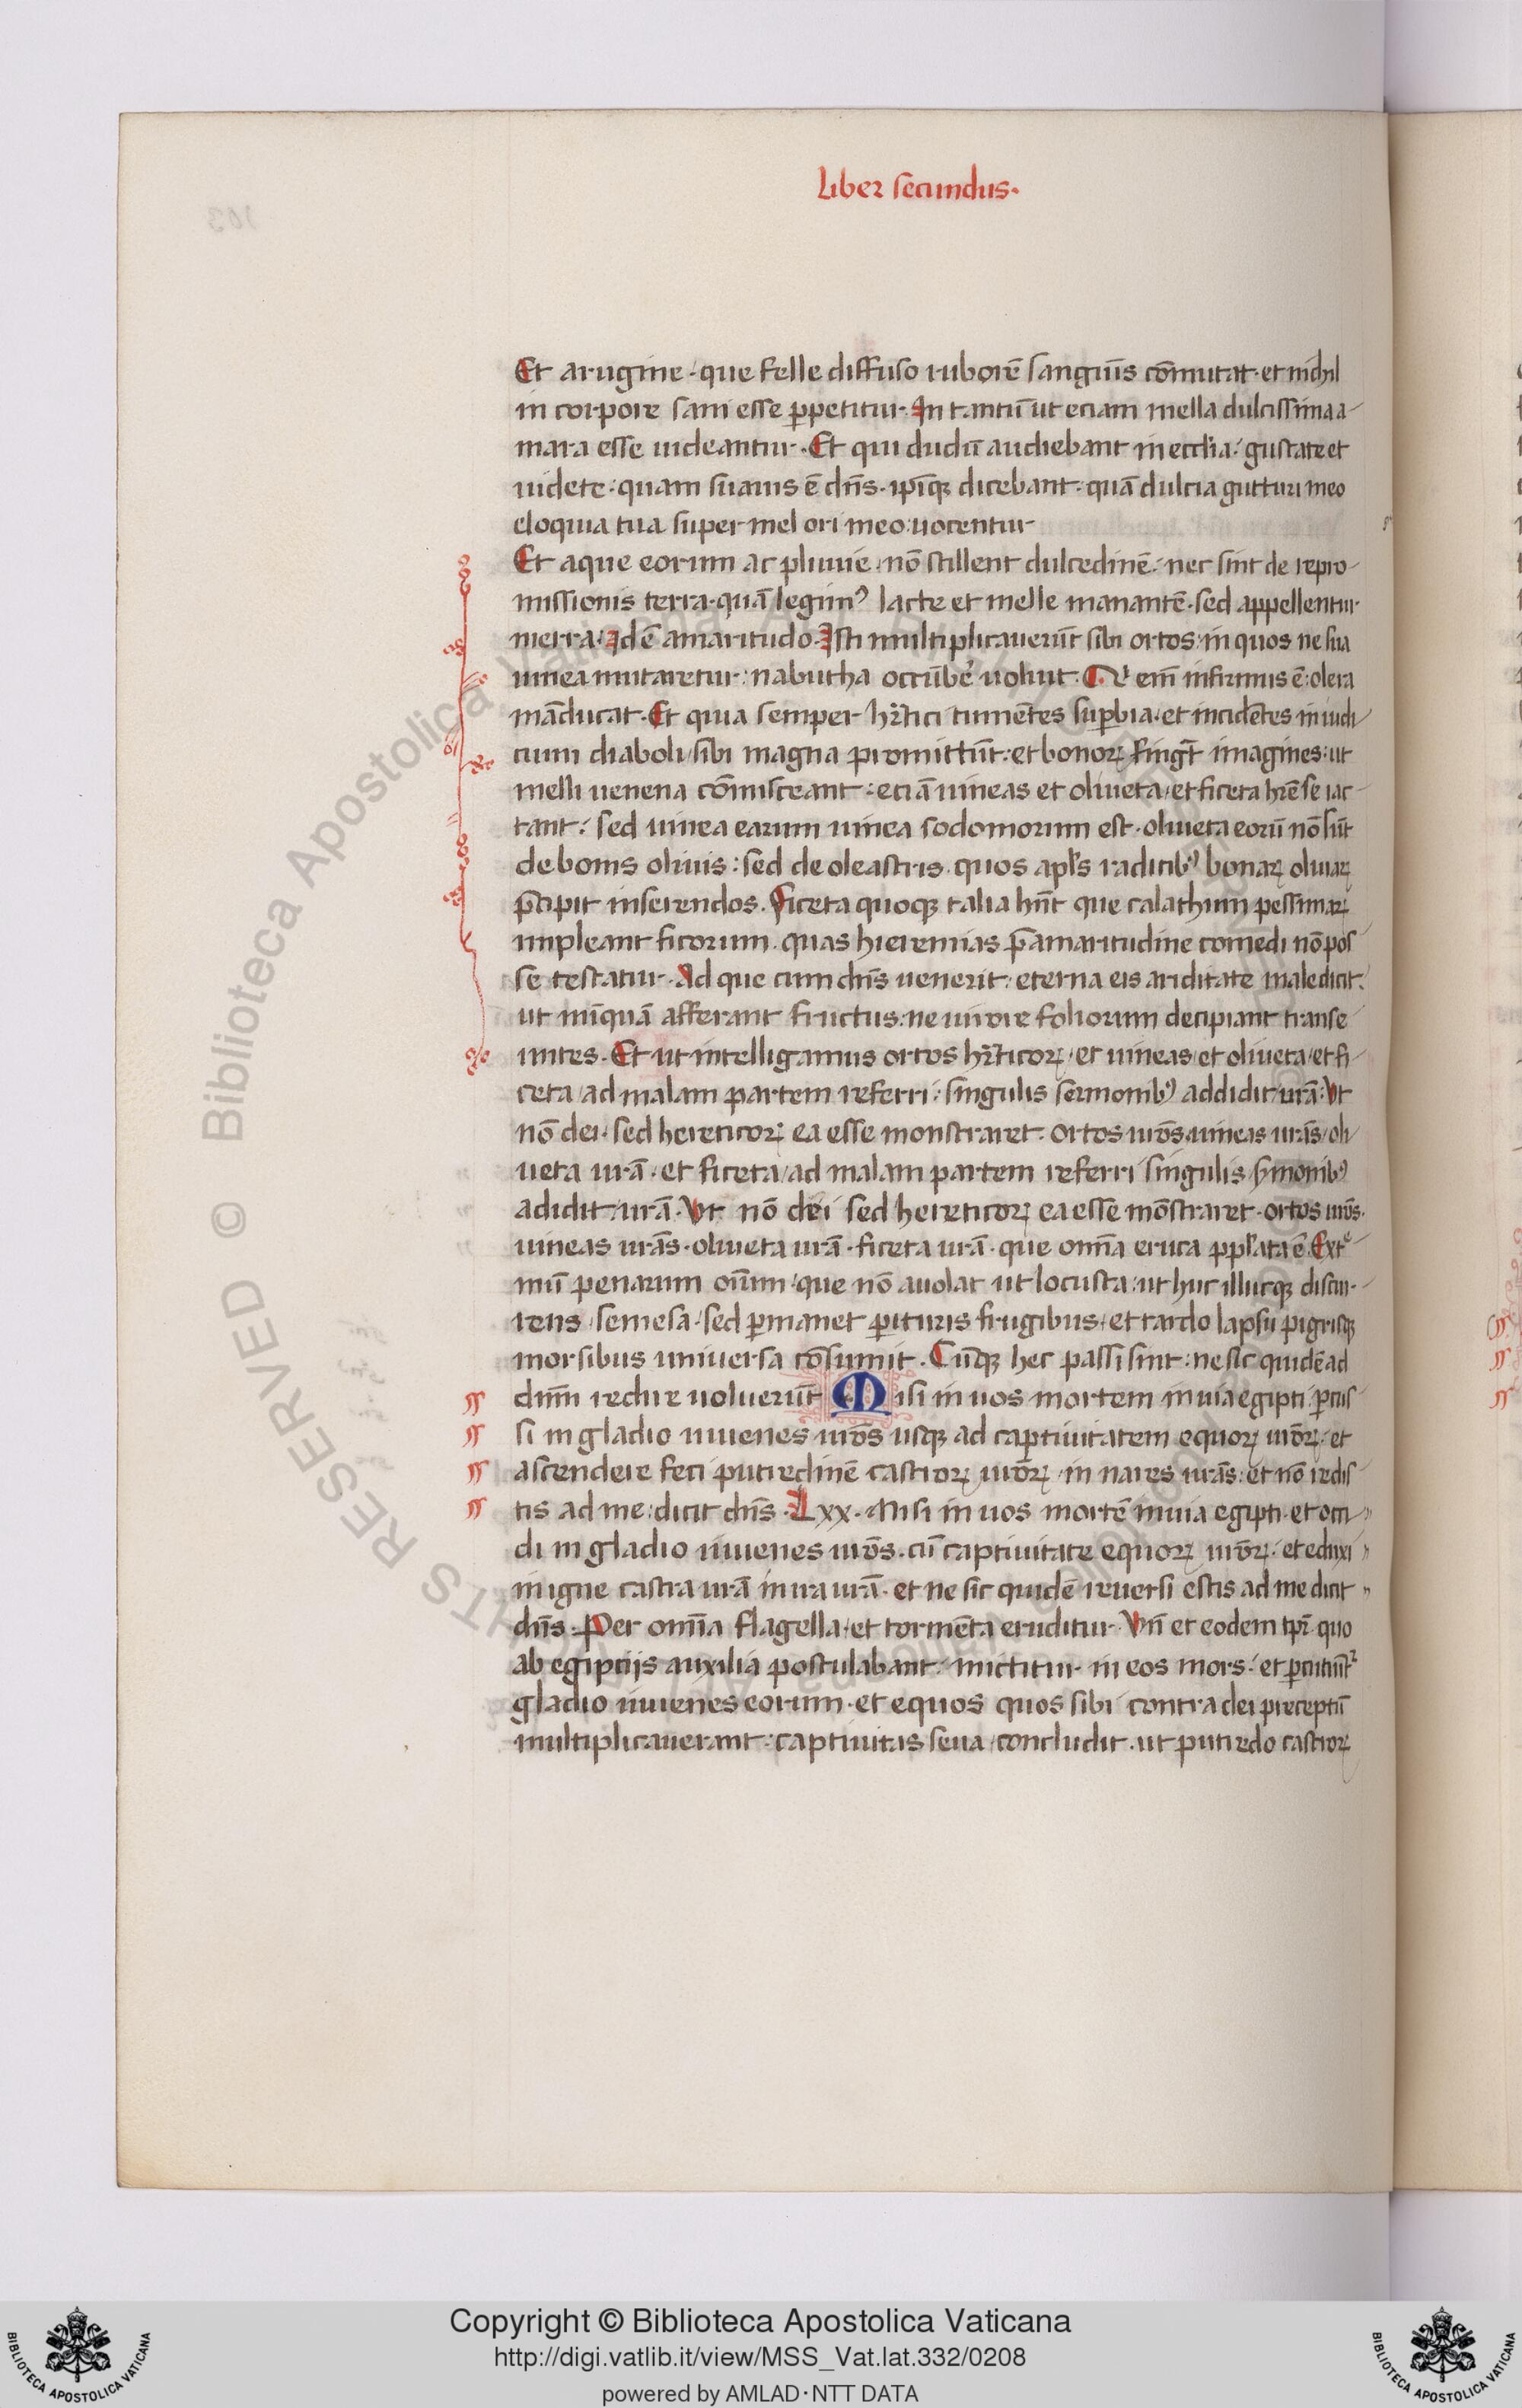 Liber secundus·
Et arugine · que felle diffuso ruborē sanguīs cōmutat · et nichil
in corpore sani esse ꝑpetitur · In tantū ut eciam mella dulcissima a-
mara esse uideantur · Et qui dudū audiebant in eccl̄ia : gustate et
uidete · quam suauis ē dn̄s · ip̄iqꝫ dicebant · quā dulcia gutturi meo
eloquia tua super mel ori meo : uocentur
Et aque eorum ac pluuie · nō stillent dulcedinē : nec sint de repro-
missionis terra · quā legimꝰ lacte et melle manantē · sed appellentur
merra · Id ē amaritudo · Isti multiplicauerūt sibi ortos : in quos ne sua
uinea mutaretur : nabutha occūbe᷒ uoluit · em̄ infirmus ē : olera
māducat · Et quia semper hr̄tici tumētes suꝑbia · et incidētes in iudi-
cium diaboli / sibi magna promittūt : et bonoꝝ fingt̄ imagines : ut
melli uenena cōmisceant : eciā uineas et oliueta / et ficeta hr̄e se iac-
tant : sed uinea earum uinea sodomorum est · oliueta eorū nō sūt
de bonis oliuis : sed de oleastris · quos apl̄s radicibꝰ bonaꝝ oliuaꝝ
p̄cipit inserendos · Ficeta quoqꝫ talia hn̄t que calathum pessimaꝝ
impleant ficorum · quas hieremias p̄ amaritudine comedi nō pos-
se testatur · Ad que cum dn̄s uenerit : eterna eis ariditate maledicit ·
ut nūquā afferant fructus : ne uirore foliorum decipiant transe-
untes · Et ut intelligamus ortos hr̄ticoꝝ · et uineas / et oliueta / et fi-
ceta / ad malam partem referri : singulis sermonibꝰ addidit / ur̄ā · Ut
nō dei · sed hereticoꝝ ea esse monstraret · ortos ur̄os · uineas ur̄as / oli-
ueta ur̄a · et ficeta / ad malam partem referri singulis s̄monibꝰ
adidit : ur̄ā · Ut nō dei sed hereticoꝝ ea esse mōstraret · ortos ur̄os ·
uineas ur̄as · oliueta ur̄a · ficeta ur̄a · que om̄ia eruca ē · Extᵉ-
mū penarum om̄ium · que nō auolat ut locusta : ut huc illucqꝫ discur-
rens / semesa · sed ꝑmanet ꝑituris frugibus · et tardo lapsu pigrisqꝫ
morsibus uniuersa cōsumit · Cūqꝫ hec passi sint : ne sic quidē ad
dn̄m redire uoluerūt Misi in uos mortem in uia egipti · ꝑcus-
si in gladio iuuenes ur̄os usqꝫ ad captiuitatem equoꝝ ur̄oꝝ · et
ascendere feci putredinē castroꝝ ur̄oꝝ · in nares ur̄as : et nō redis-
tis ad me : dicit dn̄s · Lxx · Misi in uos mortē in uia egipti · et occi-
di in gladio iuuenes ur̄os · cū captiuitate equoꝝ ur̄oꝝ · et eduxi
in igne castra ur̄a in ira ur̄a · et ne sic quidē reuersi estis ad me dicit
dn̄s · Per om̄ia flagella · et tormēta eruditur · Vn̄ et eodem tp̄r quo
ab egiptijs auxilia postulabant : mictitur in eos mors : et ꝑcutiūt᷑
gladio iuuenes eorum · et equos quos sibi contra dei preceptū
multiplicauerant : captiuitas seua / concludit · ut putredo castroꝝ
Copyright © Biblioteca Apostolica Vaticana
http://digi.vatlib.it/view/MSS_Vat.lat.332/0208
powered by AMLAD·NTT DATA